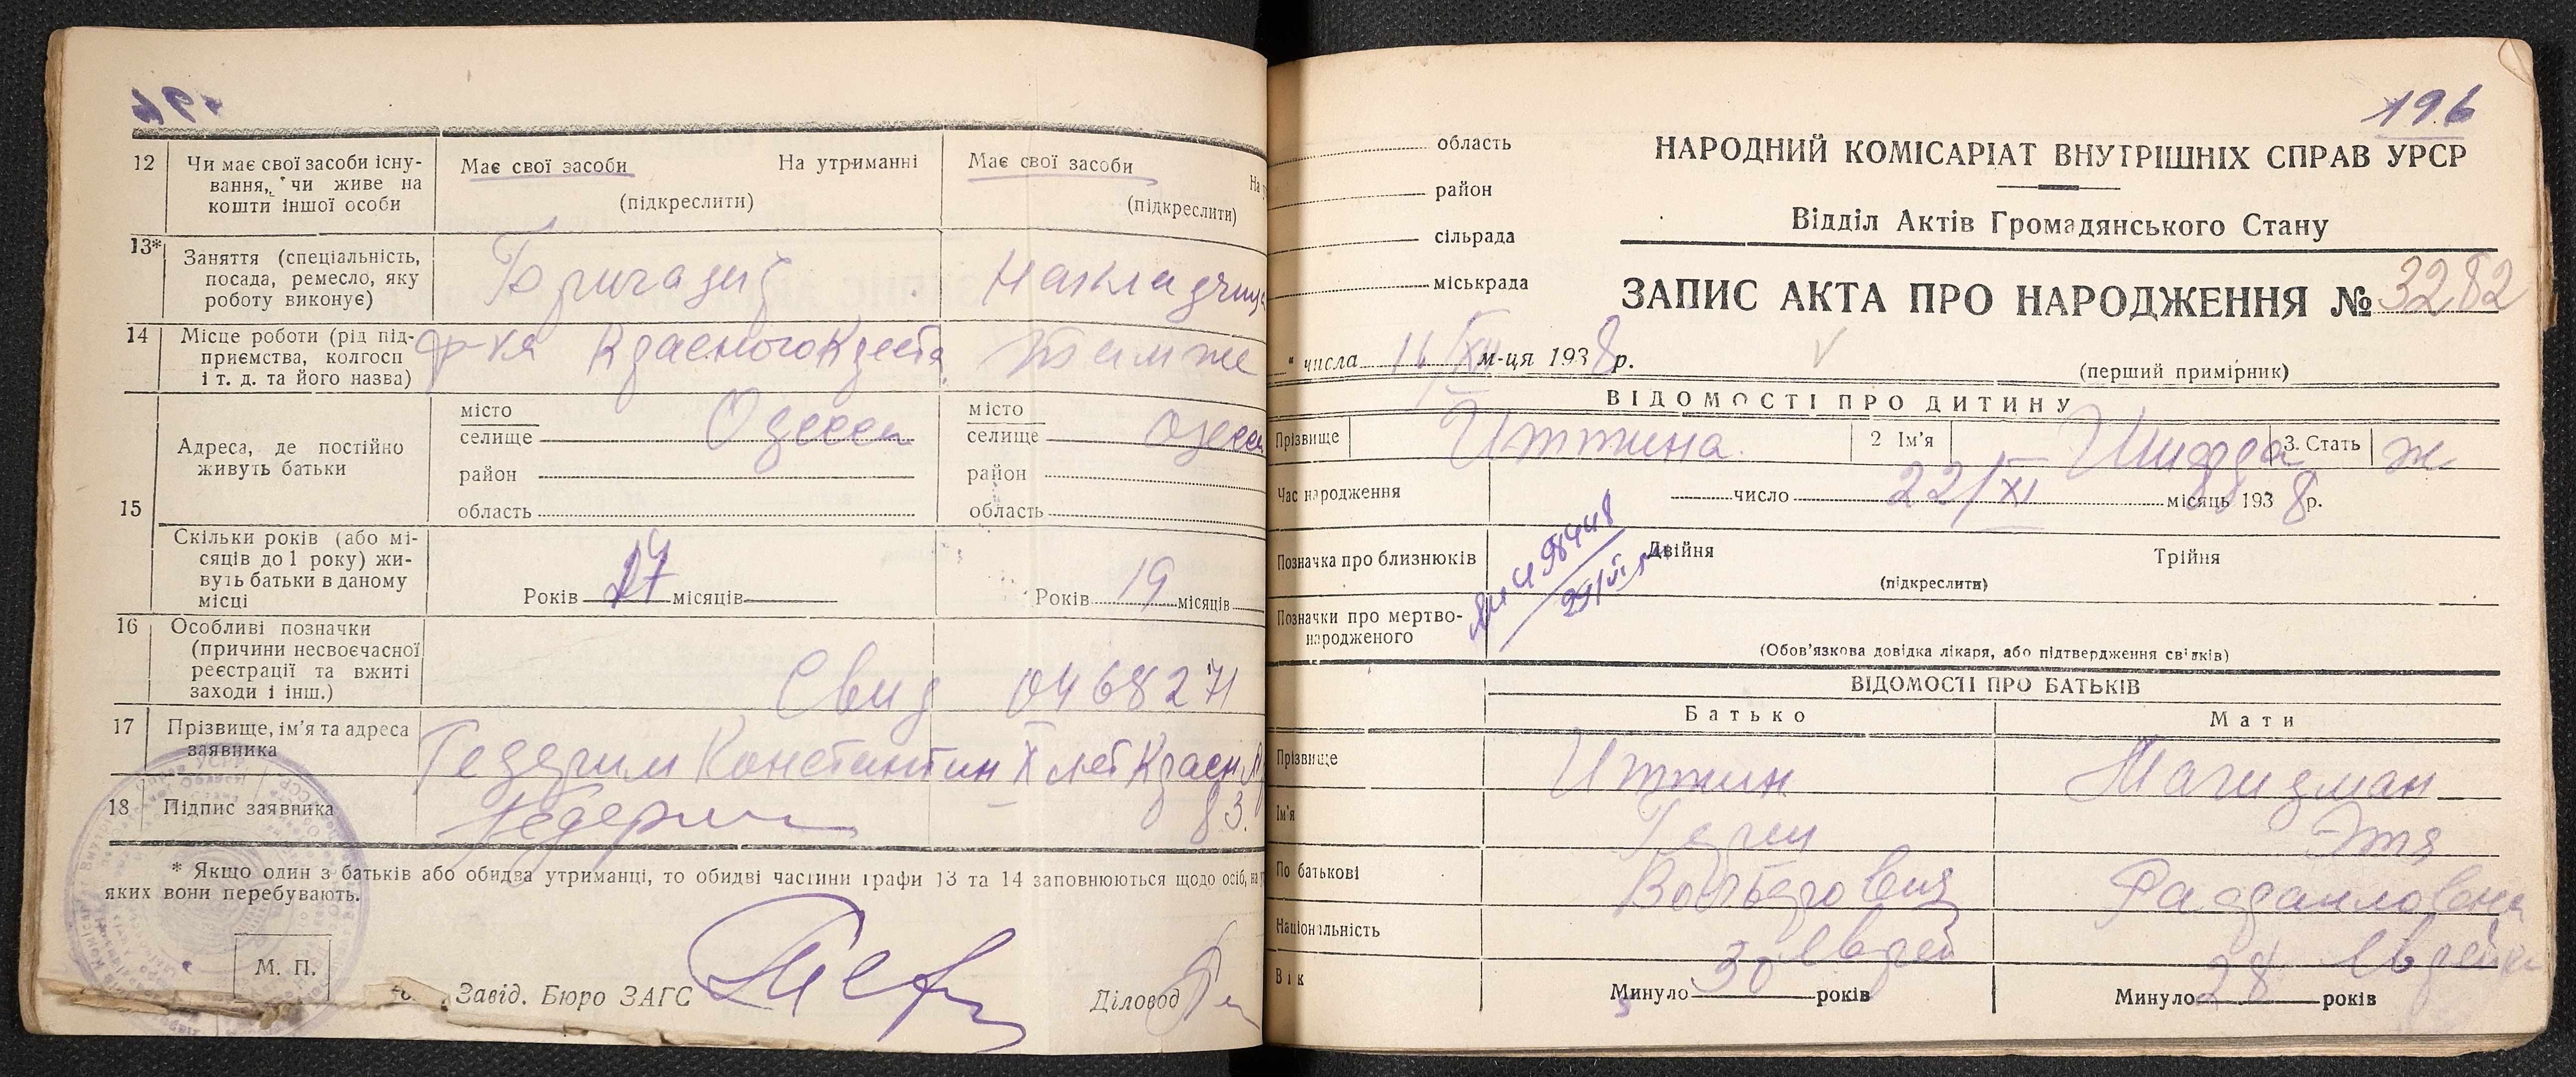 12 Чи має свої засоби існу-
вання, чи живе на
кошти іншої особи
Має свої засоби На утриманні
(підкреслити)
Має свої засоби
(підкреслити)
13* Заняття (спеціальність,
посада, ремесло, яку
роботу виконує)
Бригадир
14 Місце роботи (рід під-
приємства, колгосп
і т. д. та його назва)
ф-ка Красного Креста
Там же
15 Адреса, де постійно
живуть батьки
місто
селище Одесса
район
область
місто
селище Одесса
район
область
Скільки років (або мі-
сяців до 1 року) жи-
вуть батьки в даному
місці
Років місяців
Років 19 місяців
16 Особливі позначки
(причини несвоєчасної
реєстрації та вжиті
заходи і інш.)
Свид 0468271
17 Прізвище, ім'я та адреса
заявника
Константин X лет Красн
83.
18 Підпис заявника
* Якщо один з батьків або обидва утриманці, то обидві частини графи 13 та 14 заповнюються щодо осіб, на
яких вони перебувають.
М. П.
Завід. Бюро ЗАГС
Діловод
196
область
район
сільрада
міськрада
НАРОДНИЙ КОМІСАРІАТ ВНУТРІШНІХ СПРАВ УРСР
Відділ Актів Громадянського Стану
ЗАПИС АКТА ПРО НАРОДЖЕННЯ № 3282
" числа XII м-ця 1938 р.
(перший примірник)
ВІДОМОСТІ ПРО ДИТИНУ
Прізвище Иттина 2 Ім'я Шифра 3. Стать ж
Час народження число 22/XI місяць 1938 р.
Позначка про близнюків Двійня Трійня
(підкреслити)
Позначки про мертво-
народженого
(Обов'язкова довідка лікаря, або підтвердження свідків)
ВІДОМОСТІ ПРО БАТЬКІВ
Батько Мати
Прізвище Иттин Магидман
Ім'я Герш Этя
По батькові Вольфович Рафаиловна
Національність Еврей Еврейка
Вік Минуло 30 років Минуло 28 років